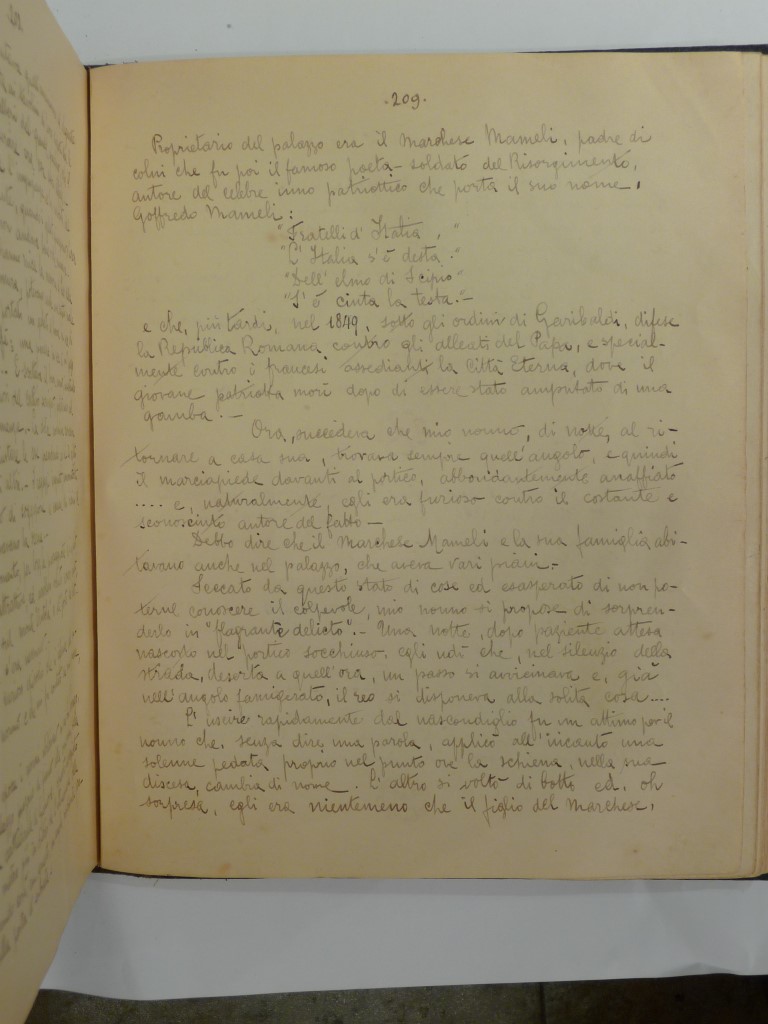 .209.
Proprietario del palazzo era il Marchese Mameli, padre di
colui che fu poi il famoso poeta-soldato del Risorgimento,
autore del celebre inno patriottico che porta il suo nome,
Goffredo Mameli:
"Fratelli d'Italia,"
"L'Italia s'è desta."
"Dell'elmo di Scipio"
"S'è cinta la testa.—
e che, più tardi, nel 1849, sotto gli ordini di Garibaldi, difese
la Repubblica Romana contro gli alleati del Papa, e special-
mente contro i francesi assedianti la Città Eterna, dove il
giovane patriota morì dopo di essere stato amputato di una
gamba.—
Ora, succedeva che mio nonno, di notte, al ri-
tornare a casa sua, trovava sempre quell'angolo, e quindi
il marciapiede davanti al portico, abbondantemente annaffiato
.... e, naturalmente, egli era furioso contro il costante e
sconosciuto autore del fatto—
Debbo dire che il Marchese Mameli e la sua famiglia abi-
tavano anche nel palazzo, che aveva vari piani.—
Seccato da questo stato di cose ed esasperato di non po-
terne conoscere il colpevole, mio nonno si propose di sorpren-
derlo in "flagrante delicto".— Una notte, dopo paziente attesa
nascosto nel portico socchiuso, egli udì che, nel silenzio della
strada, deserta a quell'ora, un passo si avvicinava e, già
nell'angolo famigerato, il reo si disponeva alla solita cosa....
L'uscire rapidamente dal nascondiglio fu un attimo per il
nonno che, senza dire una parola, applicò all'incauto una
solenne pedata proprio nel punto ove la schiena, nella sua
discesa, cambia di nome. L'altro si voltò di botto ed, oh
sorpresa, egli era nientemeno che il figlio del Marchese,